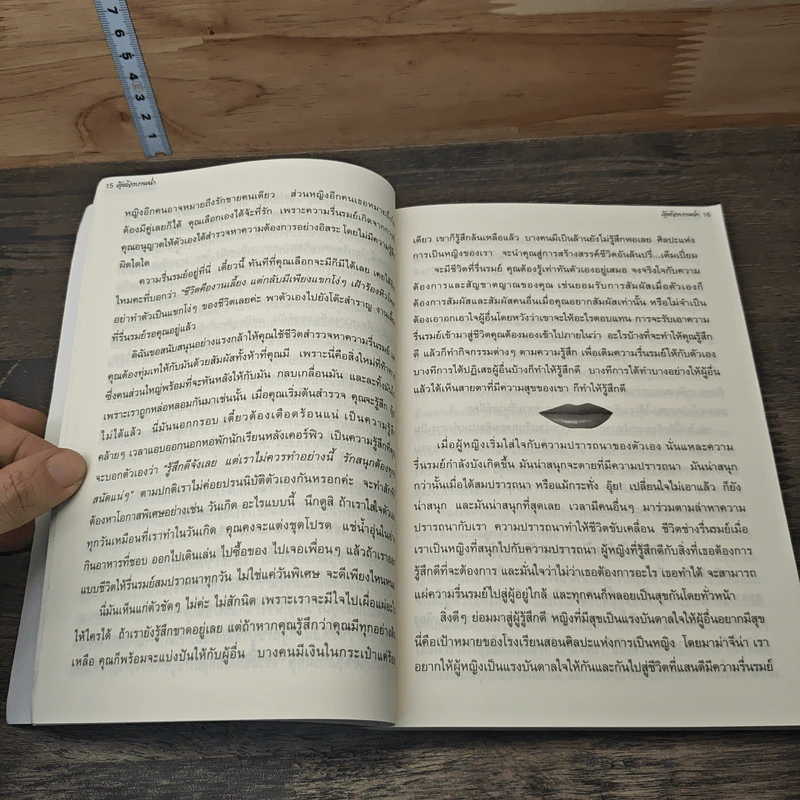 7 6 5 4 3 2 1
15 ผู้หญิงบาร์หน้า
หญิงอีกคนอาจหมายถึงรักชายคนเดียว ส่วนหญิงอีกคนเธอหมายถึง
ต้องมีคู่เลยก็ได้ คุณเลือกเองได้จ๊ะที่รัก เพราะความรื่นรมย์เกิดจากการ
คุณอนุญาตให้ตัวเองได้สำรวจหาความต้องการอย่างอิสระ โดยไม่มีความรู้สึก
ผิดใดใด
ความรื่นรมย์อยู่ที่นี่ เดี๋ยวนี้ ทันทีที่คุณเลือกจะมีก็มีได้เลย เคยได้ยิน
ไหมคะที่บอกว่า "ชีวิตคืองานเลี้ยง แต่กลับมีเพียงแขกโง่ๆ เฝ้าร้องหิวโหย
อย่าทำตัวเป็นแขกโง่ๆ ของชีวิตเลยค่ะ พาตัวเองไปยังโต๊ะสำราญ งานเลี้ยง
ที่รื่นรมย์รอคุณอยู่แล้ว
ดิฉันขอสนับสนุนอย่างแรงกล้าให้คุณใช้ชีวิตสำรวจหาความรื่นรมย์
คุณต้องทุ่มเทให้กับมันด้วยสัมผัสทั้งห้าที่คุณมี เพราะนี่คือสิ่งใหม่ที่ท้าทาย
ซึ่งคนส่วนใหญ่พร้อมที่จะหันหลังให้กับมัน กลบเกลื่อนมัน และละทิ้งมัน
เพราะเราถูกหล่อหลอมกันมาเช่นนั้น เมื่อคุณเริ่มต้นสำรวจ คุณจะรู้สึก
ไม่ได้แล้ว นี่มันนอกกรอบ เดี๋ยวต้องเดือดร้อนแน่ เป็นความรู้สึก
คล้ายๆ เวลาแอบออกนอกหอพักนักเรียนหลังเคอร์ฟิว เป็นความรู้สึกที่คุณ
จะบอกตัวเองว่า "รู้สึกดีจังเลย แต่เราไม่ควรทำอย่างนี้ รักสนุกต้องทุกข์
สนัดแน่ๆ" ตามปกติเราไม่ค่อยปรนนิบัติตัวเองกันหรอกค่ะ จะทำสักที
ต้องหาโอกาสพิเศษอย่างเช่น วันเกิด อะไรแบบนี้ นึกดูสิ ถ้าเราใส่ใจตัวเอง
ทุกวันเหมือนที่เราทำในวันเกิด คุณคงจะแต่งชุดโปรด แช่น้ำอุ่นในอ่าง
กินอาหารที่ชอบ ออกไปเดินเล่น ไปซื้อของ ไปเจอเพื่อนๆ แล้วถ้าเราออก
แบบชีวิตให้รื่นรมย์สมปรารถนาทุกวัน ไม่ใช่แค่วันพิเศษ จะดีเพียงไหนหนอ
นี่มันเห็นแก่ตัวชัดๆ ไม่ค่ะ ไม่สักนิด เพราะเราจะมีใจไปเผื่อแผ่อะไร
ให้ใครได้ ถ้าเรายังรู้สึกขาดอยู่เลย แต่ถ้าหากคุณรู้สึกว่าคุณมีทุกอย่างล้น
เหลือ คุณก็พร้อมจะแบ่งปันให้กับผู้อื่น บางคนมีเงินในกระเป๋าแค่ร้อย
ผู้หญิงบาร์หน้า 16
เดียว เขาก็รู้สึกล้นเหลือแล้ว บางคนมีเป็นล้านยังไม่รู้สึกพอเลย ศิลปะแห่ง
การเป็นหญิงของเรา จะนำคุณสู่การสร้างสรรค์ชีวิตอันล้นปรี่...เต็มเปี่ยม
จะมีชีวิตที่รื่นรมย์ คุณต้องรู้เท่าทันตัวเองอยู่เสมอ จงจริงใจกับความ
ต้องการและสัญชาตญาณของคุณ เช่นยอมรับการสัมผัสเมื่อตัวเองก็
ต้องการสัมผัสและสัมผัสคนอื่นเมื่อคุณอยากสัมผัสเท่านั้น หรือไม่จำเป็น
ต้องเอาอกเอาใจผู้อื่นโดยหวังว่าเขาจะให้อะไรตอบแทน การจะรับเอาความ
รื่นรมย์เข้ามาสู่ชีวิตคุณต้องมองเข้าไปภายในว่า อะไรบ้างที่จะทำให้คุณรู้สึก
ดี แล้วก็ทำกิจกรรมต่างๆ ตามความรู้สึก เพื่อเติมความรื่นรมย์ให้กับตัวเอง
บางทีการได้ปฏิเสธผู้อื่นบ้างก็ทำให้รู้สึกดี บางทีการได้ทำบางอย่างให้ผู้อื่น
แล้วได้เห็นสายตาที่มีความสุขของเขา ก็ทำให้รู้สึกดี
เมื่อผู้หญิงเริ่มใส่ใจกับความปรารถนาของตัวเอง นั่นแหละความ
รื่นรมย์กำลังบังเกิดขึ้น มันน่าสนุกจะตายที่มีความปรารถนา มันน่าสนุก
กว่านั้นเมื่อได้สมปรารถนา หรือแม้กระทั่ง อุ๊ย! เปลี่ยนใจไม่เอาแล้ว ก็ยัง
น่าสนุก และมันน่าสนุกที่สุดเลย เวลามีคนอื่นๆ มาร่วมตามล่าหาความ
ปรารถนากับเรา ความปรารถนาทำให้ชีวิตขับเคลื่อน ชีวิตช่างรื่นรมย์เมื่อ
เราเป็นหญิงที่สนุกไปกับความปรารถนา ผู้หญิงที่รู้สึกดีกับสิ่งที่เธอต้องการ
รู้สึกดีที่จะต้องการ และมั่นใจว่าไม่ว่าเธอต้องการอะไร เธอทำได้ จะสามารถ
แผ่ความรื่นรมย์ไปสู่ผู้อยู่ใกล้ และทุกคนก็พลอยเป็นสุขกันโดยทั่วหน้า
สิ่งดีๆ ย่อมมาสู่ผู้รู้สึกดี หญิงที่มีสุขเป็นแรงบันดาลใจให้ผู้อื่นอยากมีสุข
นี่คือเป้าหมายของโรงเรียนสอนศิลปะแห่งการเป็นหญิง โดยมาม่าจีน่า เรา
อยากให้ผู้หญิงเป็นแรงบันดาลใจให้กันและกันไปสู่ชีวิตที่แสนดีมีความรื่นรมย์